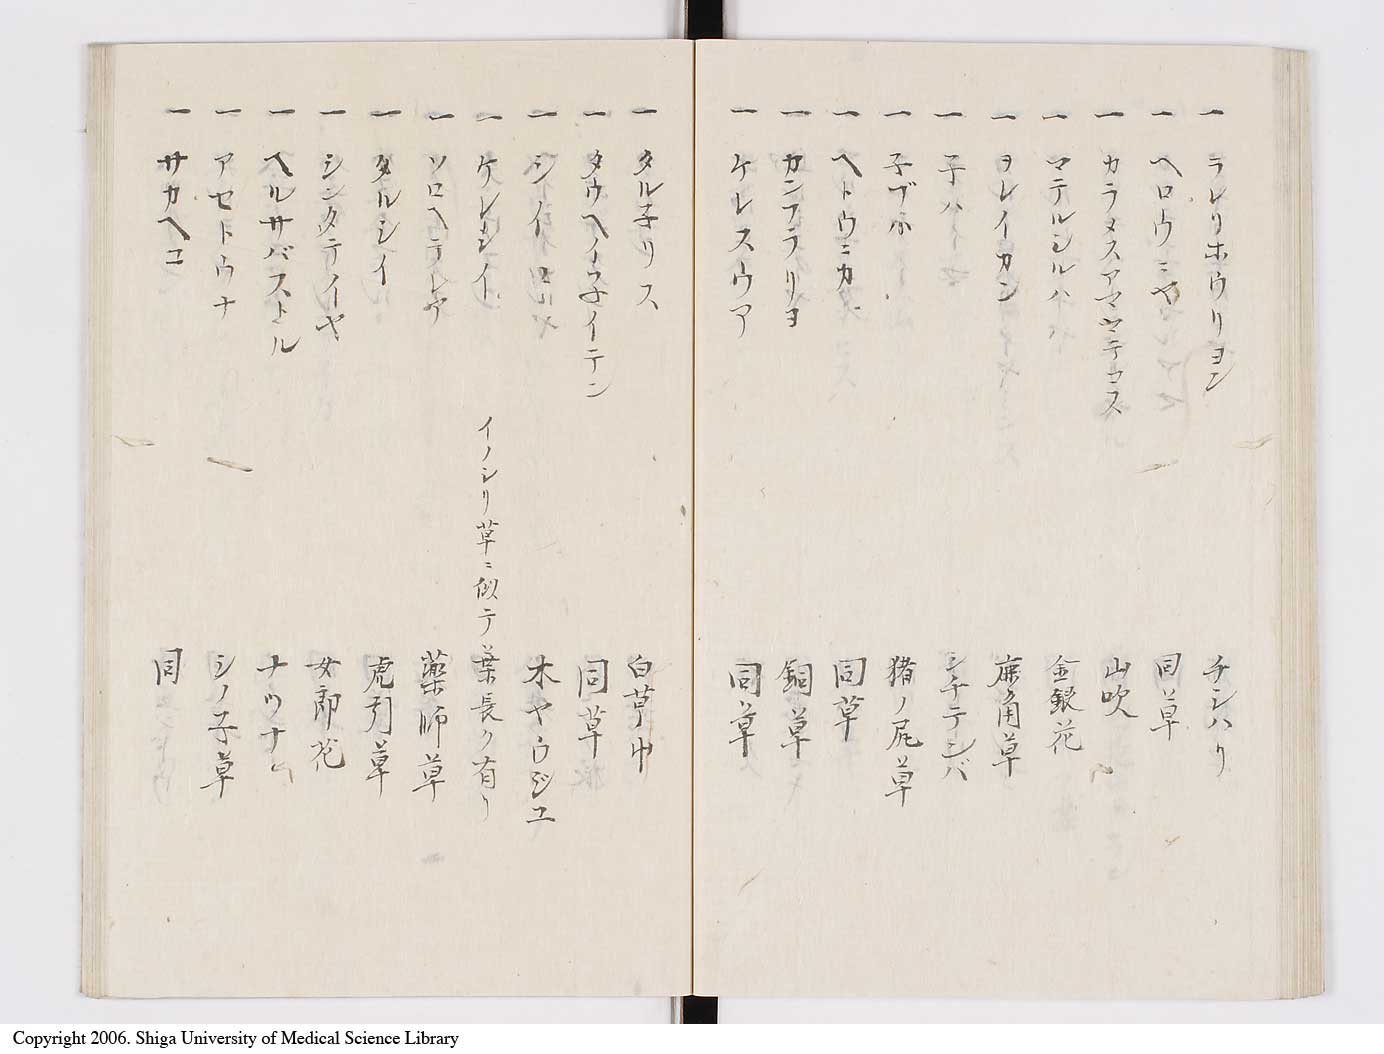 一 ラレリホウリヨン チシハリ
一 ヘロウニヤ 同草
一 カラメスアマテコス 山吹
一 マテルシルハ 金銀花
一 ヲレイカン 鹿角草
一 子ハ シチテンバ
一 子ブホ 猪ノ尻草
一 ヘトウニカ 同草
一 カンフラリヨ 銅草
一 ケレスウア 同草
一 タル子リス 白草
一 タウヘイウ子イテン 同草
一 シイ 木ヤウジユ
一 ケレシイ イノシリ草ニ似テ葉長ク有リ
一 ソロヘテレア 薬師草
一 タルシイ 虎列草
一 シンタテイヤ 女郎花
一 ヘルサバストル ナツナ
一 アセトウナ シノ子草
一 サカヘコ 同
Copyright 2006. Shiga University of Medical Science Library